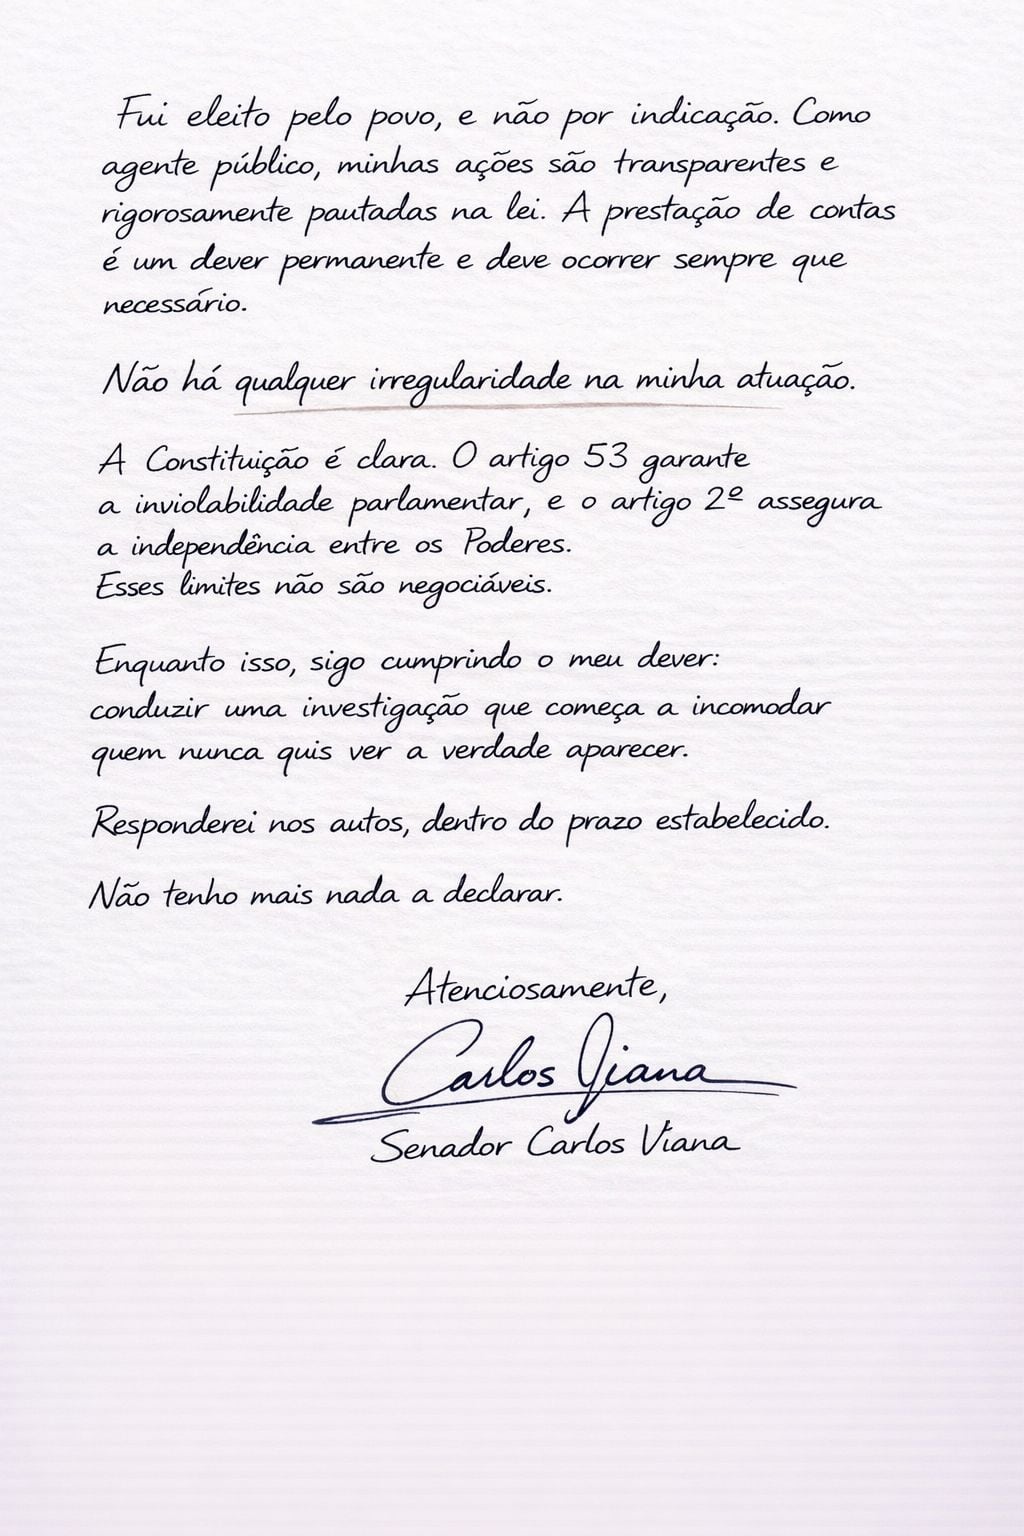 Fui eleito pelo povo, e não por indicação. Como
agente público, minhas ações são transparentes e
rigorosamente pautadas na lei. A prestação de contas
é um dever permanente e deve ocorrer sempre que
necessário.
Não há qualquer irregularidade na minha atuação.
A Constituição é clara. O artigo 53 garante
a inviolabilidade parlamentar, e o artigo 2º assegura
a independência entre os Poderes.
Esses limites não são negociáveis.
Enquanto isso, sigo cumprindo o meu dever:
conduzir uma investigação que começa a incomodar
quem nunca quis ver a verdade aparecer.
Responderei nos autos, dentro do prazo estabelecido.
Não tenho mais nada a declarar.
Atenciosamente,
Carlos Viana
Senador Carlos Viana